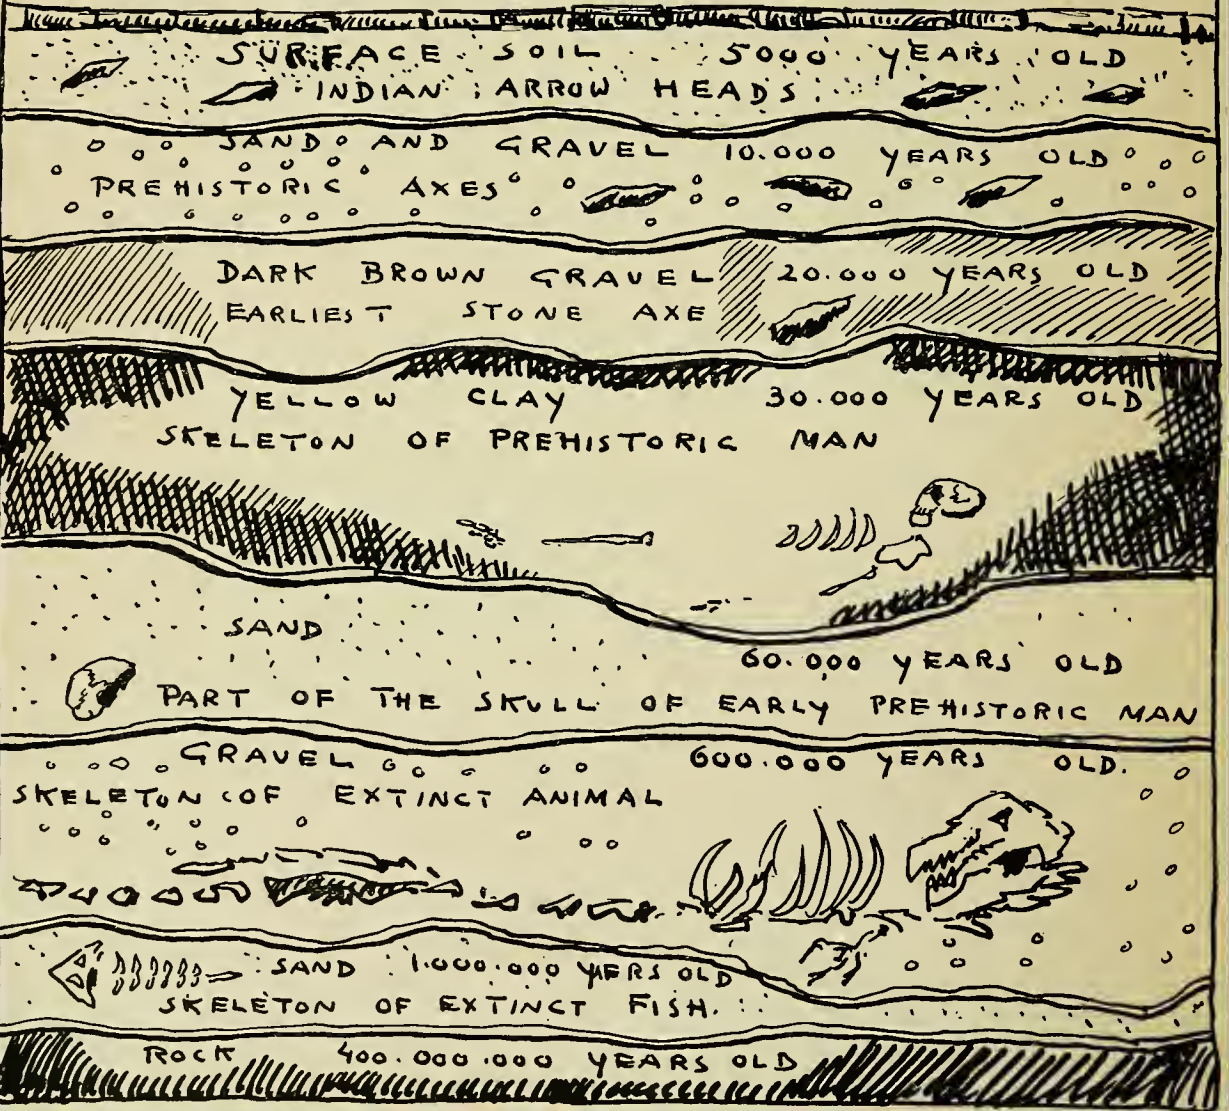 SURFACE SOIL 5000 YEARS OLD
INDIAN ARROW HEADS
SAND AND GRAVEL 10.000 YEARS OLD
PREHISTORIC AXES
DARK BROWN GRAVEL 20.000 YEARS OLD
EARLIEST STONE AXE
YELLOW CLAY 30.000 YEARS OLD
SKELETON OF PREHISTORIC MAN
SAND
60.000 YEARS OLD
PART OF THE SKULL OF EARLY PREHISTORIC MAN
GRAVEL 600.000 YEARS OLD.
SKELETON OF EXTINCT ANIMAL
SAND 1.000.000 YERS OLD
SKELETON OF EXTINCT FISH.
ROCK 400.000.000 YEARS OLD